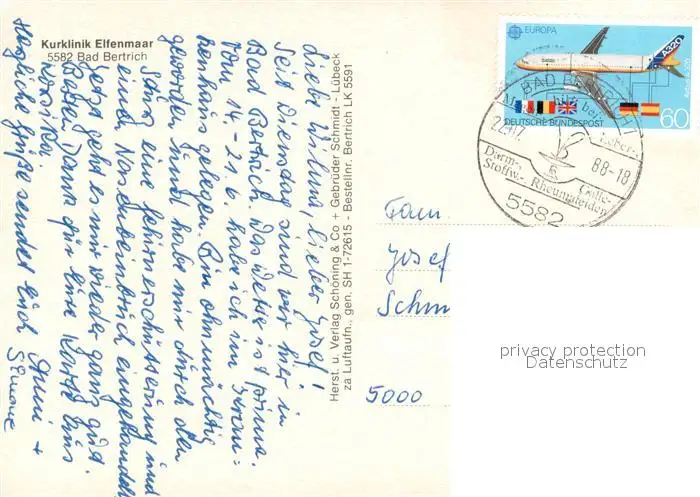 Kurklinik Elfenmaar
5582 Bad Bertrich
Liebe Wilma, lieber Josef!
Seit Dienstag sind wir hier in
Bad Bertrich. Das Wetter ist prima.
Vom 14.-21.6. habe ich im Kran-
kenhaus gelegen. Bin ohnmächtig
geworden und habe mir durch den
Sturz eine Gehirnerschütterung und
einen Nasenbeinbruch eingehandelt.
Jetzt geht es mir wieder ganz gut.
Besten Dank für die Karte aus
Herzliche Grüße sendet euch Anni +
Simone
Herst. u. Verlag Schöning & Co + Gebrüder Schmidt - Lübeck
za Luftaufn., gen. SH 1-72615 - Bestellnr. Bertrich LK 5591
EUROPA
A320
DEUTSCHE BUNDESPOST
60
BAD BERTRICH
hilft bei
Leber-,
22.-7.
88-18
Darm-,
Galle-
Stoffw.-
Rheumaleiden
5582
Fam.
Josef
Schm
5000
privacy protection
Datenschutz